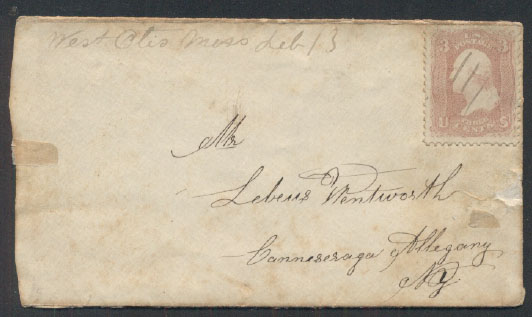 West Otis Mass Feb 13
3 3
U S
Mr
Lebeus Wentworth
Canneseraga Allegany
NY.